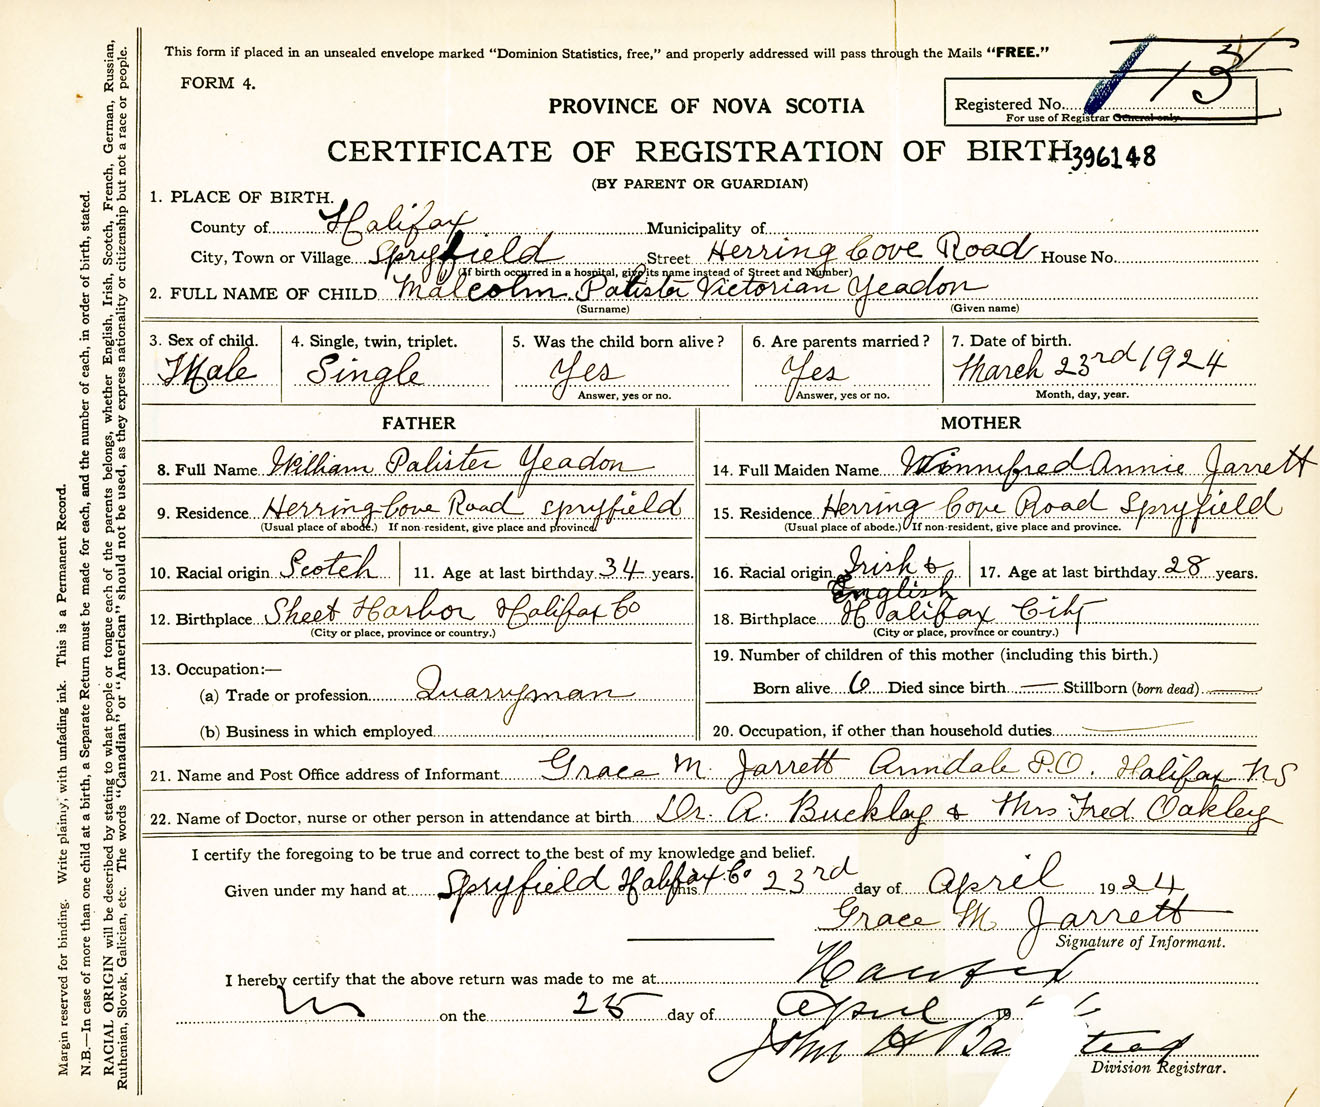 This form if placed in an unsealed envelope marked "Dominion Statistics, free," and properly addressed will pass through the Mails "FREE."
FORM 4.
13
PROVINCE OF NOVA SCOTIA
Registered No.
For use of Registrar General only.
CERTIFICATE OF REGISTRATION OF BIRTH 396148
(BY PARENT OR GUARDIAN)
1. PLACE OF BIRTH.
County of Halifax Municipality of
City, Town or Village Spryfield Street Herring Cove Road House No.
(If birth occurred in a hospital, give its name instead of Street and Number)
2. FULL NAME OF CHILD Malcolm Palister Victorian Yeadon
(Surname) (Given name)
3. Sex of child. 4. Single, twin, triplet. 5. Was the child born alive? 6. Are parents married? 7. Date of birth.
Male Single Yes Yes March 23rd 1924
Answer, yes or no. Answer, yes or no. Month, day, year.
FATHER MOTHER
8. Full Name William Palister Yeadon 14. Full Maiden Name Winnifred Annie Jarrett
9. Residence Herring Cove Road Spryfield 15. Residence Herring Cove Road Spryfield
(Usual place of abode.) If non-resident, give place and province. (Usual place of abode.) If non-resident, give place and province.
10. Racial origin Scotch 11. Age at last birthday 34 years. 16. Racial origin Irish & English 17. Age at last birthday 28 years.
12. Birthplace Sheet Harbor Halifax Co 18. Birthplace Halifax City
(City or place, province or country.) (City or place, province or country.)
13. Occupation:— 19. Number of children of this mother (including this birth.)
(a) Trade or profession Quarryman Born alive 6 Died since birth — Stillborn (born dead) —
(b) Business in which employed 20. Occupation, if other than household duties —
21. Name and Post Office address of Informant Grace M. Jarrett Armdale P.O. Halifax N S
22. Name of Doctor, nurse or other person in attendance at birth Dr. A. Buckley & Mrs Fred Oakley
I certify the foregoing to be true and correct to the best of my knowledge and belief.
Given under my hand at Spryfield Halifax Co this 23rd day of April 1924
Grace M. Jarrett
Signature of Informant.
I hereby certify that the above return was made to me at Halifax
on the 25 day of April 19
John H
Division Registrar.
Margin reserved for binding. Write plainly, with unfading ink. This is a Permanent Record.
N.B.—In case of more than one child at a birth, a Separate Return must be made for each, and the number of each, in order of birth, stated.
RACIAL ORIGIN will be described by stating to what people or tongue each of the parents belongs, whether English, Irish, Scotch, French, German, Russian,
Ruthenian, Slovak, Galician, etc. The words "Canadian" or "American" should not be used, as they express nationality or citizenship but not a race or people.